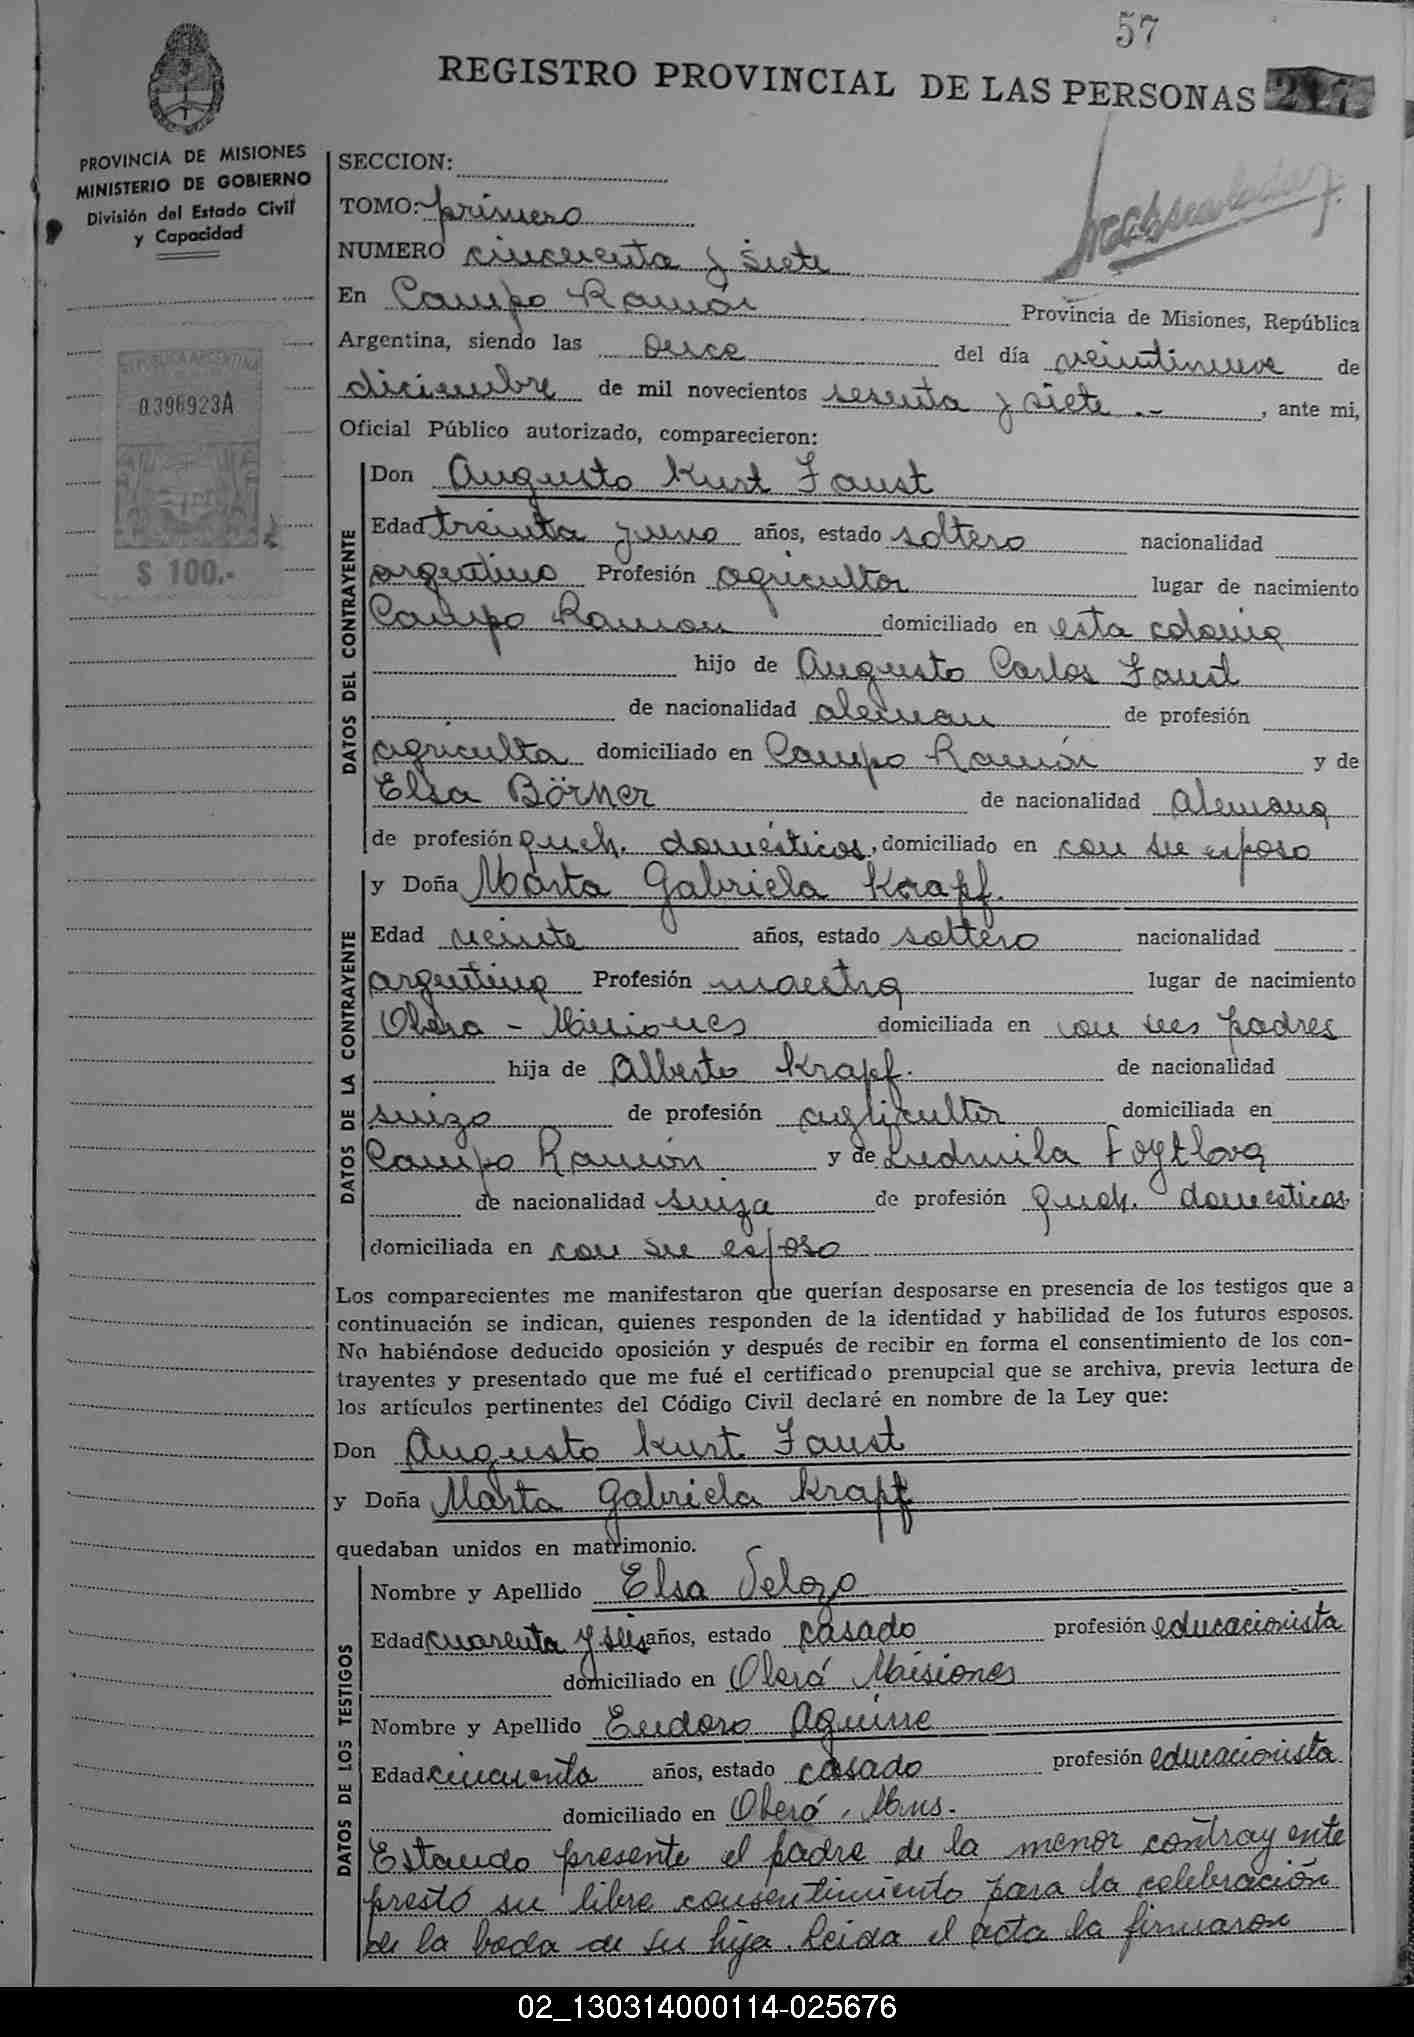 57
REGISTRO PROVINCIAL DE LAS PERSONAS 217
PROVINCIA DE MISIONES
MINISTERIO DE GOBIERNO
División del Estado Civil
y Capacidad
REPUBLICA ARGENTINA
0.396923A
$ 100.-
SECCION:
TOMO: primero
NUMERO cincuenta y siete
En Campo Ramón Provincia de Misiones, República
Argentina, siendo las once del día veintinueve de
diciembre de mil novecientos sesenta y siete.-, ante mi,
Oficial Público autorizado, comparecieron:
DATOS DEL CONTRAYENTE
Don Augusto Kurt Faust
Edad treinta y uno años, estado soltero nacionalidad
argentino Profesión agricultor lugar de nacimiento
Campo Ramon domiciliado en esta colonia
hijo de Augusto Carlos Faust
de nacionalidad aleman de profesión
agriculta domiciliado en Campo Ramón y de
Elsa Börner de nacionalidad alemana
de profesión queh. domésticos, domiciliado en con su esposo
DATOS DE LA CONTRAYENTE
y Doña Marta Gabriela Krapf.
Edad veinte años, estado soltero nacionalidad
argentina Profesión maestra lugar de nacimiento
Obera - Misiones domiciliada en con sus padres
hija de Alberto Krapf. de nacionalidad
suizo de profesión agricultor domiciliada en
Campo Ramón y de Ludmila Foytlova
de nacionalidad suiza de profesión queh. domesticos
domiciliada en con su esposo
Los comparecientes me manifestaron que querían desposarse en presencia de los testigos que a
continuación se indican, quienes responden de la identidad y habilidad de los futuros esposos.
No habiéndose deducido oposición y después de recibir en forma el consentimiento de los con-
trayentes y presentado que me fué el certificado prenupcial que se archiva, previa lectura de
los artículos pertinentes del Código Civil declaré en nombre de la Ley que:
Don Augusto Kurt Faust
y Doña Marta Gabriela Krapf
quedaban unidos en matrimonio.
DATOS DE LOS TESTIGOS
Nombre y Apellido Elsa Velozo
Edad cuarenta y seis años, estado casado profesión educacionista
domiciliado en Oberá Misiones
Nombre y Apellido Eudoro Aguirre
Edad cincuenta años, estado casado profesión educacionista
domiciliado en Oberá, Mns.
Estando presente el padre de la menor contrayente
prestó su libre consentimiento para la celebración
de la boda de su hija. Leida el acta la firmaron
02_130314000114-025676